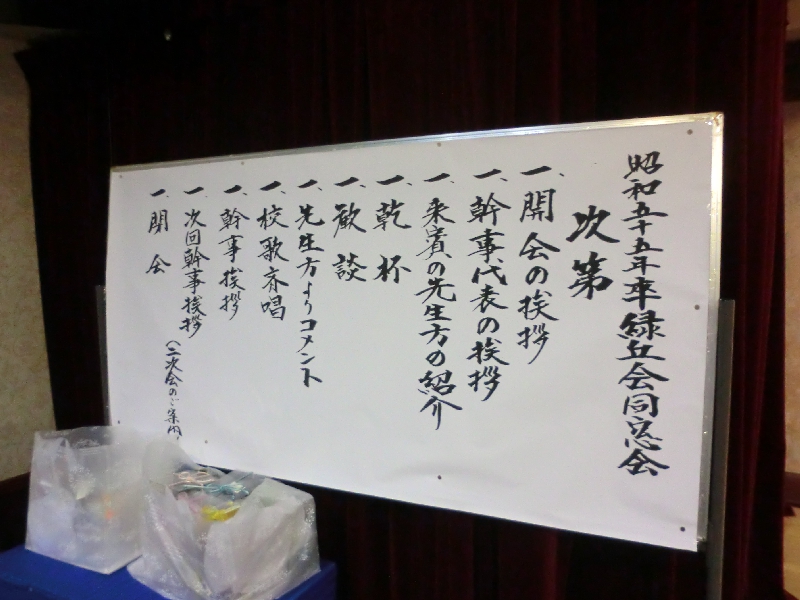 昭和五十五年卒緑丘会同窓会
次第
一、開会の挨拶
一、幹事代表の挨拶
一、来賓の先生方の紹介
一、乾杯
一、歓談
一、先生方よりコメント
一、校歌斉唱
一、幹事挨拶
一、次回幹事挨拶
(二次会のご案内)
一、閉会